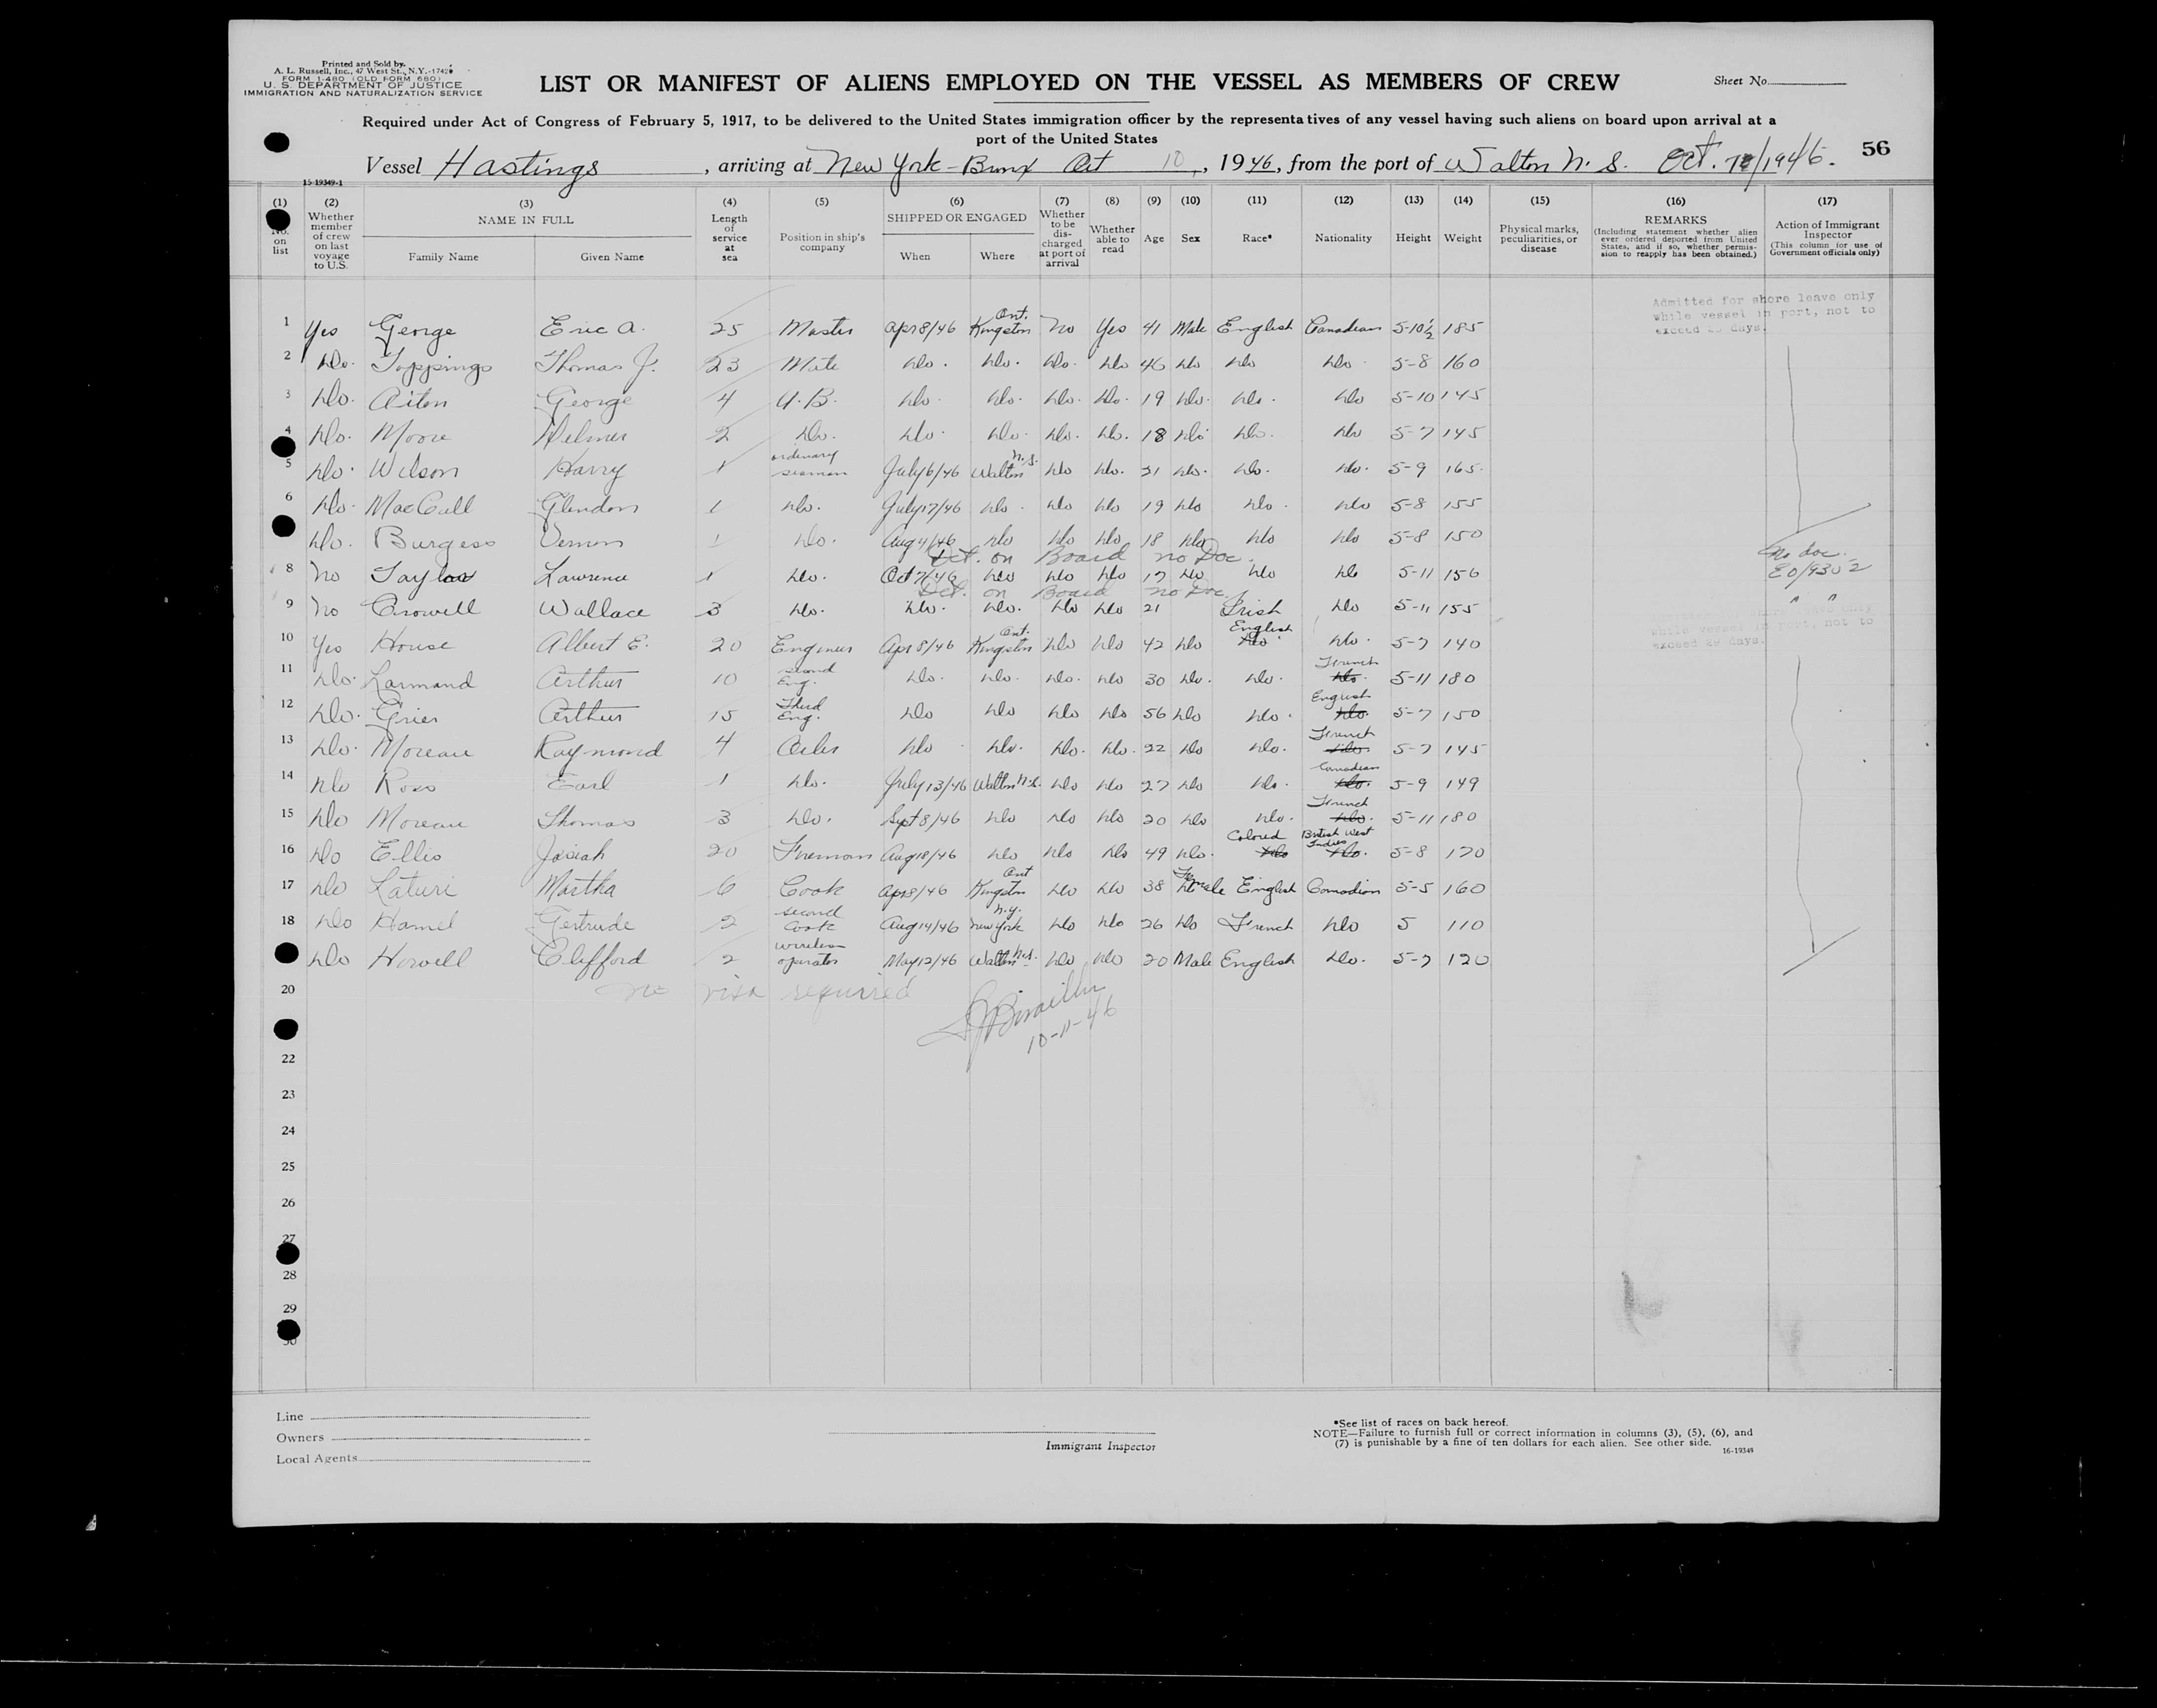 Printed and Sold by
A. L. Russell, Inc., 47 West St., N.Y.
FORM I-480 (OLD FORM 680)
U. S. DEPARTMENT OF JUSTICE
IMMIGRATION AND NATURALIZATION SERVICE
LIST OR MANIFEST OF ALIENS EMPLOYED ON THE VESSEL AS MEMBERS OF CREW
Sheet No.
Required under Act of Congress of February 5, 1917, to be delivered to the United States immigration officer by the representatives of any vessel having such aliens on board upon arrival at a
port of the United States
56
Vessel Hastings, arriving at New York - Bronx Oct 10, 1946, from the port of Walton N. S. Oct. /1946.
15-19349-1
(1) No. on list
(2) Whether member of crew on last voyage to U.S.
(3) NAME IN FULL Family Name Given Name
(4) Length of service at sea
(5) Position in ship's company
(6) SHIPPED OR ENGAGED When Where
(7) Whether to be discharged at port of arrival
(8) Whether able to read
(9) Age
(10) Sex
(11) Race*
(12) Nationality
(13) Height
(14) Weight
(15) Physical marks, peculiarities, or disease
(16) REMARKS (Including statement whether alien ever ordered deported from United States, and if so, whether permission to reapply has been obtained.)
(17) Action of Immigrant Inspector (This column for use of Government officials only)
Admitted for shore leave only
while vessel in port, not to
exceed 29 days.
1 Yes George Eric A. 25 Master Apr 8/46 Kingston Ont. No Yes 41 Male English Canadian 5-10½ 185
2 do. Toppings Thomas J. 23 Mate do. do. do. do 46 do do do 5-8 160
3 do. Aiton George 4 A.B. do. do. do. do. 19 do. do. do 5-10 145
4 do. Moore Delmer 2 do. do. do. do. do. 18 do do. do 5-7 145
5 do. Wilson Harry 1 ordinary seaman July 6/46 Walton N.S. do do. 21 do. do. do. 5-9 165
6 do. MacCull Glendon 1 do. July 17/46 do. do do 19 do do. do 5-8 155
do. Burgess Vernon 1 do. Aug 4/46 do do do 18 do do do 5-8 150
Det. on Board no Doc.
no doc.
8 No Taylor Lawrence 1 do. Oct 7/46 do do do 17 do do do 5-11 156 EO/9352
Det. on Board no Doc.
9 No Crowell Wallace 3 do. do. do. do do 21 Irish do 5-11 155 " "
while vessel in port, not to
exceed 29 days.
10 Yes House Albert E. 20 Engineer Apr 8/46 Kingston Ont. do do 42 do English do. 5-7 140
11 do. Larmand Arthur 10 second Eng. do. do. do. do 30 do. do. French 5-11 180
12 do. Grier Arthur 15 Third Eng. do do do do 56 do do. English 5-7 150
13 do. Moreau Raymond 4 Oiler do do. do. do. 22 do do. French 5-7 145
14 do Ross Earl 1 do. July 13/46 Walton N.S. do do 27 do do. Canadian 5-9 149
15 do Moreau Thomas 3 do. Sept 8/46 do do do 20 do do. French 5-11 180
16 do Ellis Josiah 20 Fireman Aug 18/46 do do do 49 do. Colored British West Indies 5-8 170
17 do Laturi Martha 6 Cook Apr 8/46 Kingston Ont do do 38 Female English Canadian 5-5 160
18 do Hamel Gertrude 2 second Cook Aug 14/46 New York N.Y. do do 26 do French do 5 110
do Howell Clifford 2 wireless operator May 12/46 Walton N.S. do do 20 Male English do. 5-7 120
no visa required
20
10-11-46
22
23
24
25
26
27
28
29
30
Line
Owners
Local Agents
Immigrant Inspector
*See list of races on back hereof.
NOTE—Failure to furnish full or correct information in columns (3), (5), (6), and
(7) is punishable by a fine of ten dollars for each alien. See other side.
16-19349